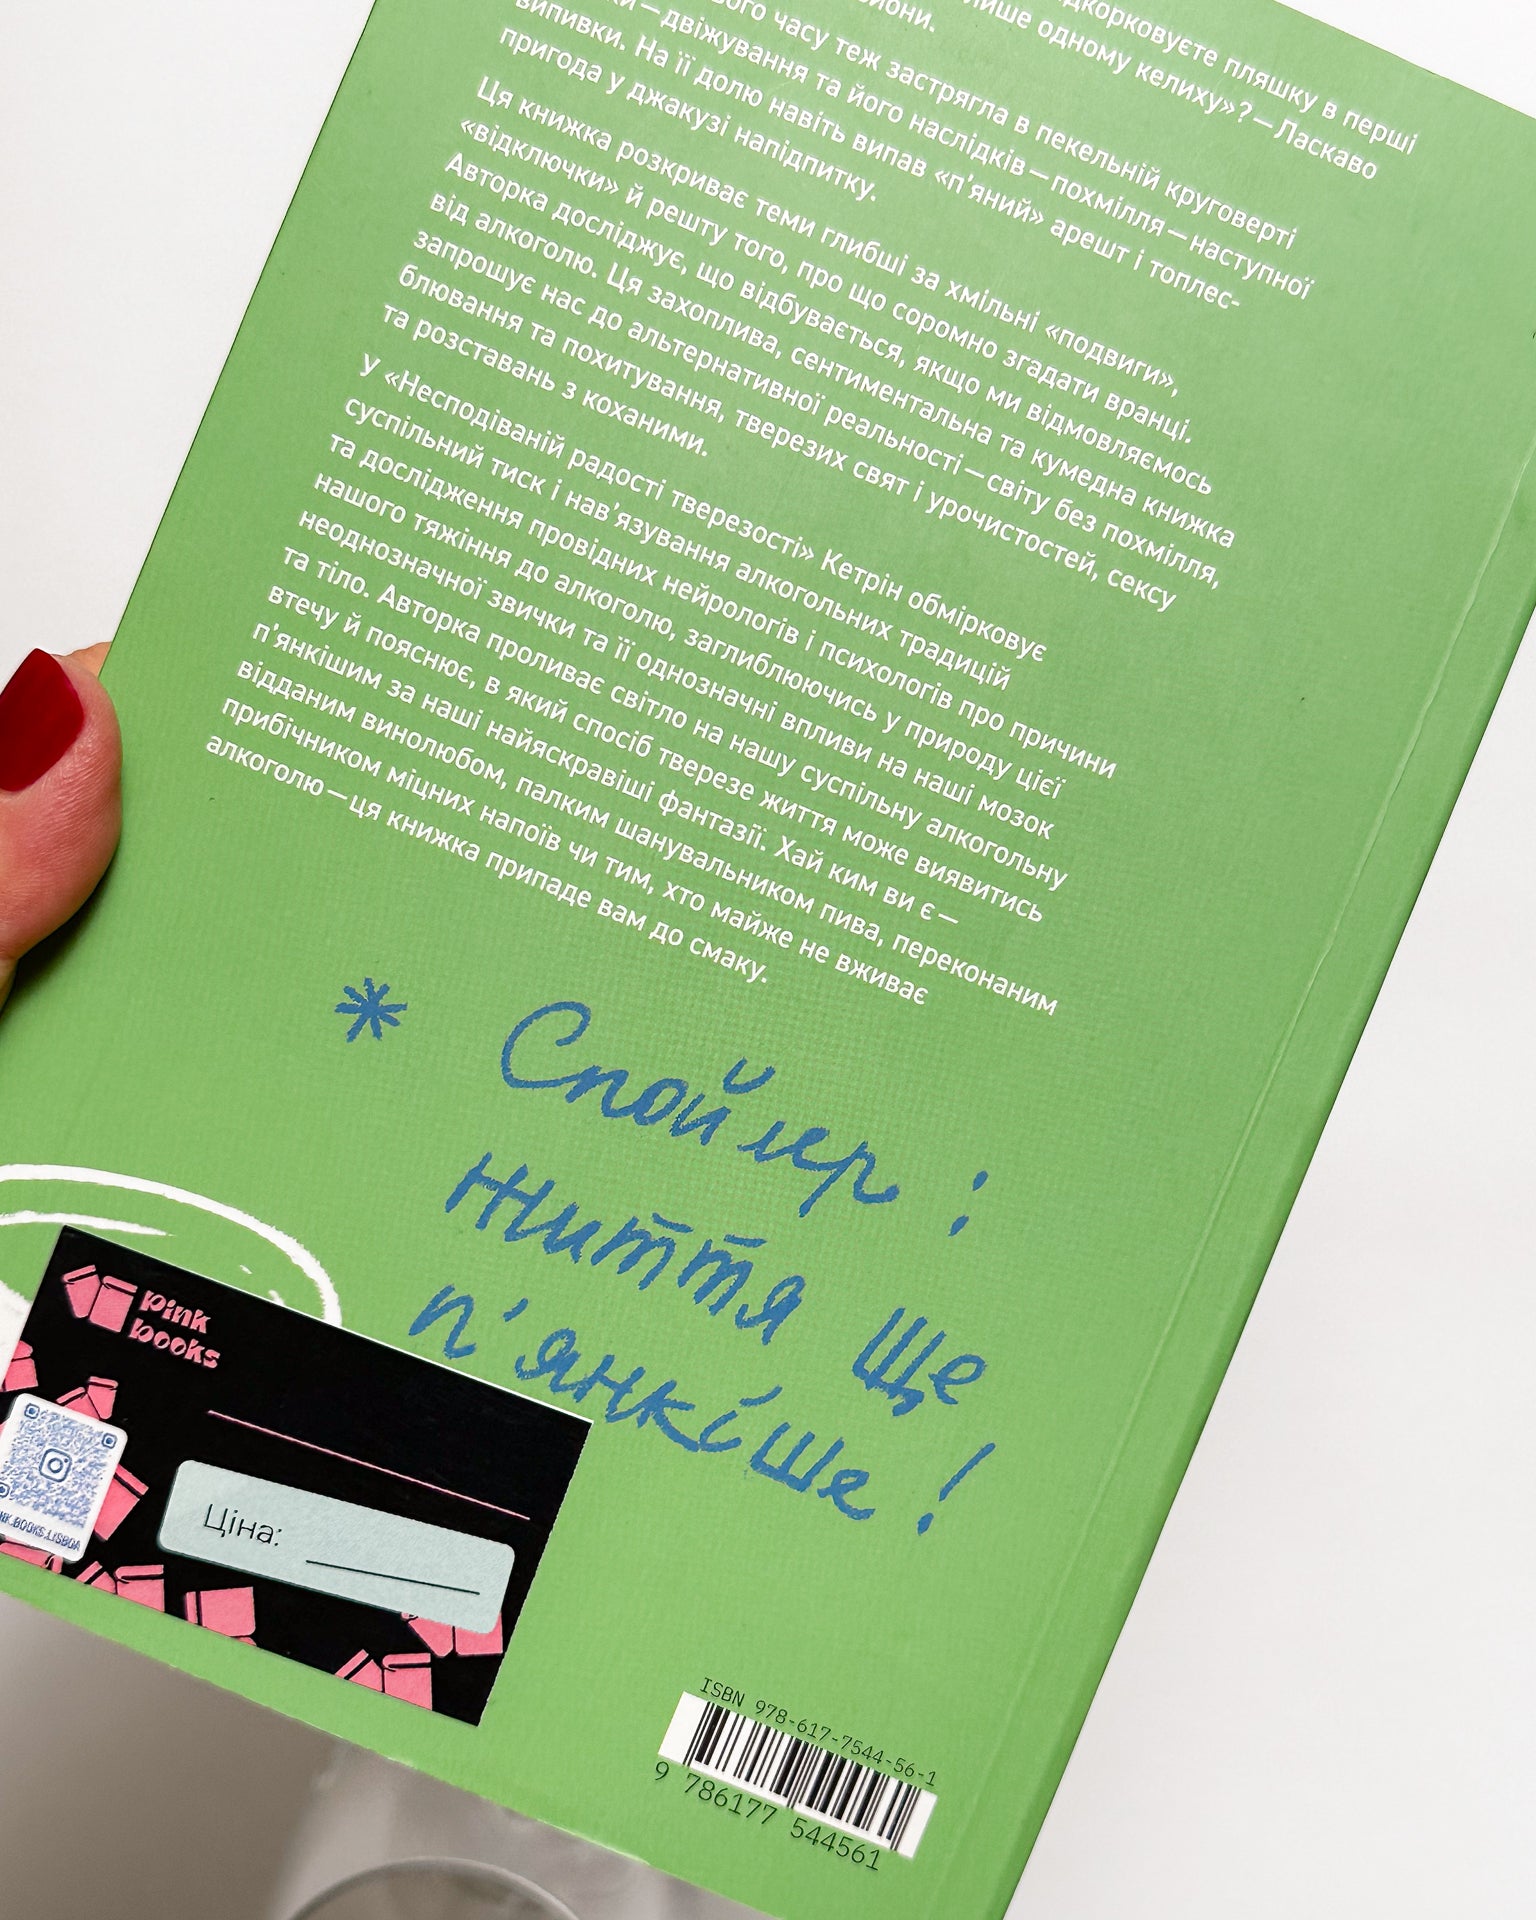 дкорковуєте пляшку в перші
лише одному келиху»? — Ласкаво
часу теж застрягла в пекельній круговерті
— двіжування та його наслідків — похмілля — наступної
випивки. На її долю навіть випав «п'яний» арешт і топлес-
пригода у джакузі напідпитку.
Ця книжка розкриває теми глибші за хмільні «подвиги»,
«відключки» й решту того, про що соромно згадати вранці.
Авторка досліджує, що відбувається, якщо ми відмовляємось
від алкоголю. Ця захоплива, сентиментальна та кумедна книжка
запрошує нас до альтернативної реальності — світу без похмілля,
блювання та похитування, тверезих свят і урочистостей, сексу
та розставань з коханими.
У «Несподіваній радості тверезості» Кетрін обмірковує
суспільний тиск і нав'язування алкогольних традицій
та дослідження провідних нейрологів і психологів про причини
нашого тяжіння до алкоголю, заглиблюючись у природу цієї
неоднозначної звички та її однозначні впливи на наші мозок
та тіло. Авторка проливає світло на нашу суспільну алкогольну
втечу й пояснює, в який спосіб тверезе життя може виявитись
п'янкішим за наші найяскравіші фантазії. Хай ким ви є —
відданим винолюбом, палким шанувальником пива, переконаним
прибічником міцних напоїв чи тим, хто майже не вживає
алкоголю — ця книжка припаде вам до смаку.
* Спойлер:
життя ще
п'янкіше!
pink
books
Ціна:
NK.BOOKS.LISBOA
ISBN 978-617-7544-56-1
9 786177 544561